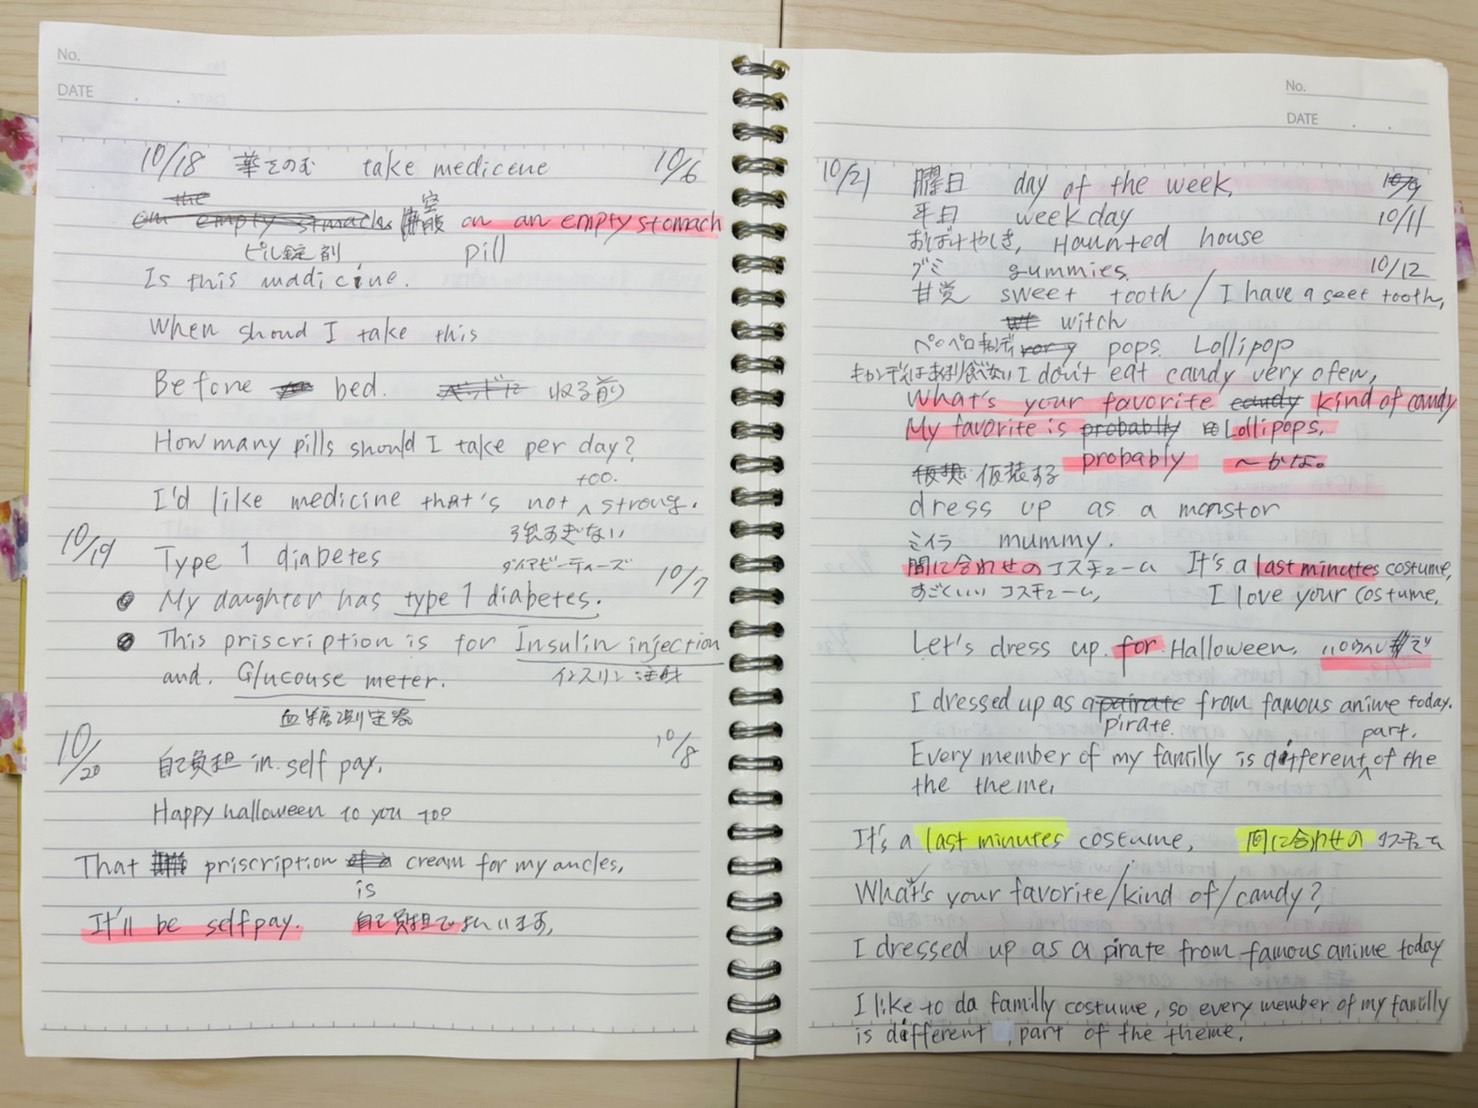 No.
DATE . .
10/18 薬をのむ take medicene 10/6
the
on empty stmach 空腹 on an empty stomach
ピル錠剤 pill
Is this maddicine.
When shoud I take this
Before bed. 寝る前
How many pills should I take per day?
too.
I'd like medicine that's not ^ strong.
強すぎない
10/19 Type 1 diabetes ダイアビーティーズ 10/7
● My daughter has type 1 diabetes.
● This priscription is for Insulin injection
インスリン注射
and. Glucouse meter.
血糖測定器
10/20 自己負担 in self pay. 10/8
Happy halloween to you too
That priscription cream for my ancles.
is
It'll be selfpay. 自己負担ではらいます。
No.
DATE . .
10/21 曜日 day of the week. 10/9
平日 weekday 10/11
おばけやしき, Haunted house
グミ gummies. 10/12
甘党 sweet tooth / I have a seet tooth,
witch
ペロペロキャンディ pops. Lollipop
キャンディはあまり食べない I don't eat candy very ofen,
What's your favorite candy kind of candy
My favorite is probablly Lollipops,
probably 〜かな。
仮装 仮装する
dress up as a monstor
ミイラ mummy.
間に合わせのコスチューム It's a last minutes costume,
すごくいい コスチューム, I love your costume,
Let's dress up for Halloween.
I dressed up as a pairate from famous anime today.
pirate. part.
Every member of my familly is different ^ of the
the theme.
It's a last minutes costume, 間に合わせの コスチューム
What's your favorite/kind of/candy?
I dressed up as a pirate from famous anime today
I like to da familly costume, so every member of my familly
is different part of the theme.